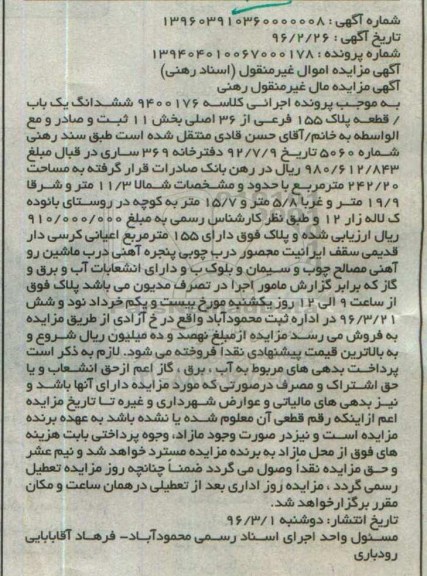 شماره آگهی : ۱۳۹۶۰۳۹۱۰۳۶۰۰۰۰۰۰۸
تاریخ آگهی : ۹۶/۲/۲۶
شماره پرونده : ۱۳۹۴۰۴۰۱۰۰۶۷۰۰۰۱۷۸
آگهی مزایده اموال غیرمنقول (اسناد رهنی)
آگهی مزایده مال غیرمنقول رهنی
به موجب پرونده اجرائی کلاسه ۹۴۰۰۱۷۶ ششدانگ یک باب
/ قطعه پلاک ۱۵۵ فرعی از ۳۶ اصلی بخش ۱۱ ثبت و صادر و مع
الواسطه به خانم/آقای حسن قادی منتقل شده است طبق سند رهنی
شماره ۵۰۶۰ تاریخ ۹۲/۷/۹ دفترخانه ۳۶۹ ساری در قبال مبلغ
۹۸۰/۶۱۲/۸۴۳ ریال در رهن بانک صادرات قرار گرفته به مساحت
۲۴۲/۲۰ مترمربع با حدود و مشخصات شمالا ۱۱/۳ متر و شرقا
۱۹/۹ متر و غربا ۵/۸ متر و ۱۵/۷ متر به کوچه در روستای بانوده
ک لاله زار ۱۲ و طبق نظر کارشناس رسمی به مبلغ ۹۱۰/۰۰۰/۰۰۰
ریال ارزیابی شده و پلاک فوق دارای ۱۵۵ مترمربع اعیانی کرسی دار
قدیمی سقف ایرانیت محصور درب چوبی پنجره آهنی درب ماشین رو
آهنی مصالح چوب و سیمان و بلوک ب و دارای انشعابات آب و برق و
گاز که برابر گزارش مامور اجرا در تصرف مدیون می باشد پلاک فوق
از ساعت ۹ الی ۱۲ روز یکشنبه مورخ بیست و یکم خرداد نود و شش
۹۶/۳/۲۱ در اداره ثبت محمودآباد واقع در خ آزادی از طریق مزایده
به فروش می رسد مزایده ازمبلغ نهصد و ده میلیون ریال شروع و
به بالاترین قیمت پیشنهادی نقدا فروخته می شود. لازم به ذکر است
پرداخت بدهی های مربوط به آب ، برق ، گاز اعم ازحق انشعاب و یا
حق اشتراک و مصرف درصورتی که مورد مزایده دارای آنها باشد و
نیز بدهی های مالیاتی و عوارض شهرداری و غیره تا تاریخ مزایده
اعم ازاینکه رقم قطعی آن معلوم شده یا نشده باشد به عهده برنده
مزایده است و نیزدر صورت وجود مازاد، وجوه پرداختی بابت هزینه
های فوق از محل مازاد به برنده مزایده مسترد خواهد شد و نیم عشر
و حق مزایده نقداً وصول می گردد ضمناً چنانچه روز مزایده تعطیل
رسمی گردد ، مزایده روز اداری بعد از تعطیلی درهمان ساعت و مکان
مقرر برگزارخواهد شد.
تاریخ انتشار: دوشنبه ۹۶/۳/۱
مسئول واحد اجرای اسناد رسمی محمودآباد- فرهاد آقابابایی
رودباری